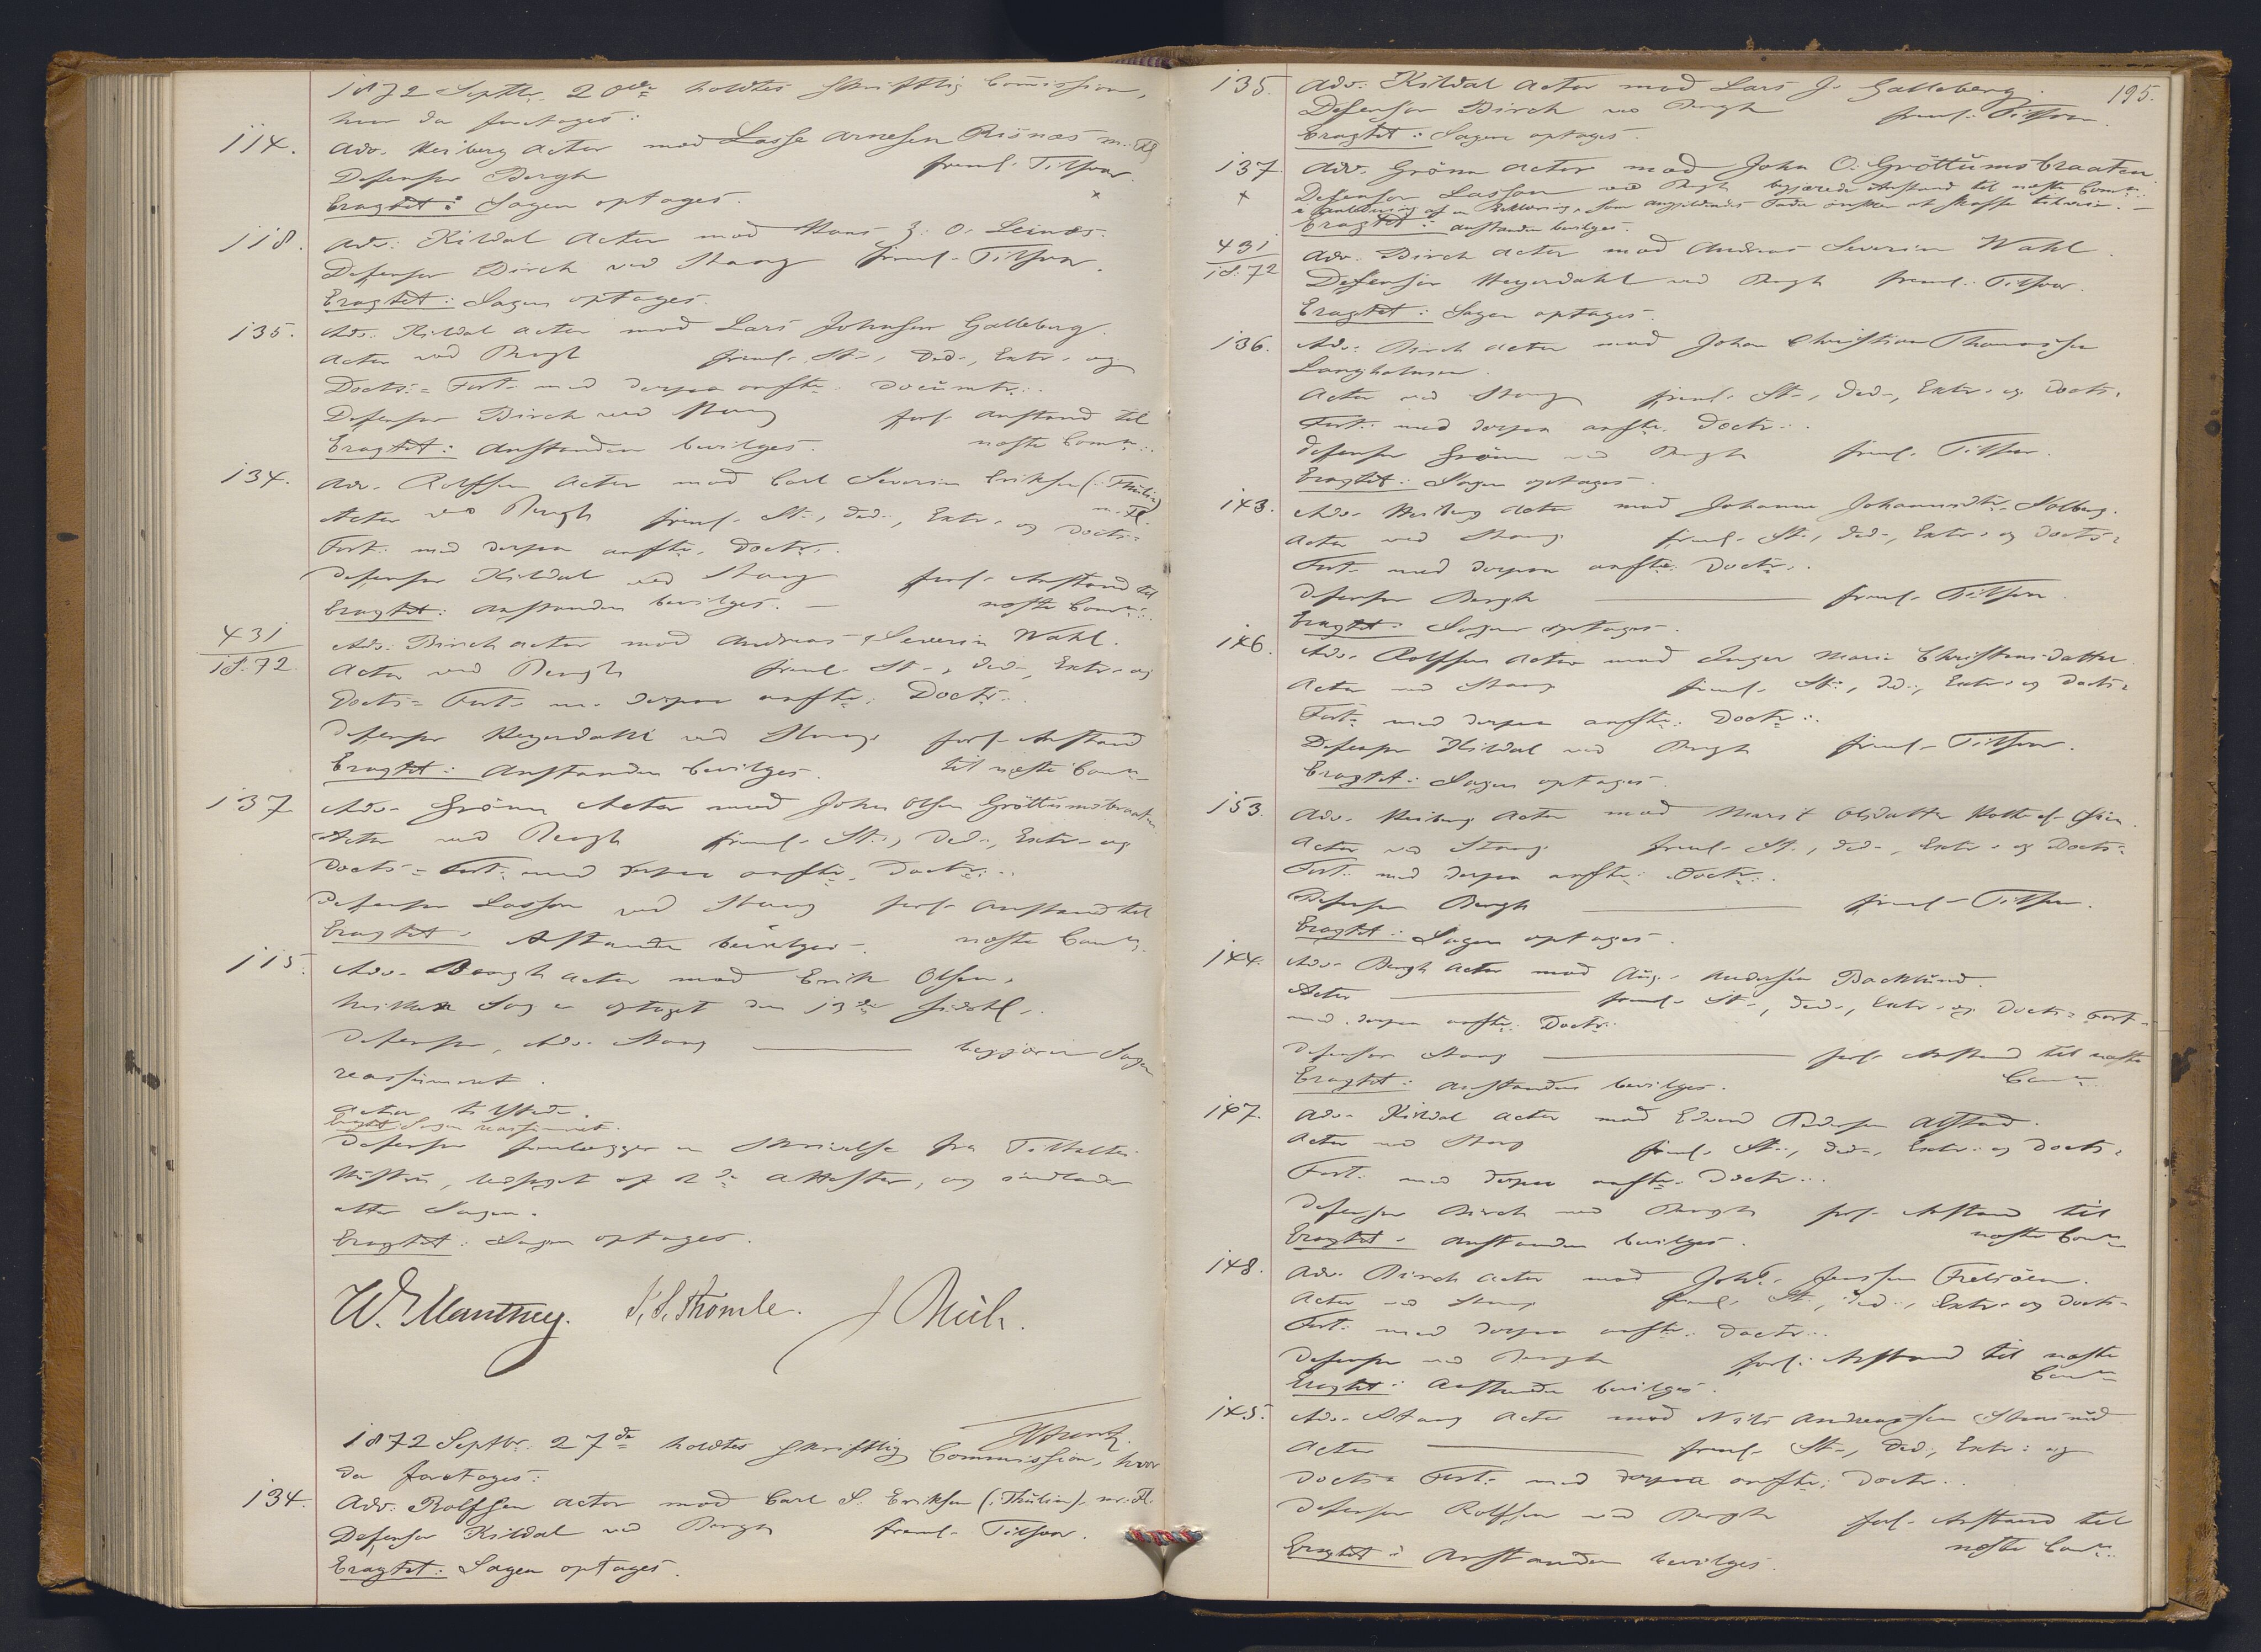 1872 Septbr. 20de holdtes skriftlig Commission,
hvor da foretages:
114. Adv. Heiberg Actor mod Lasse Arnesen Risnæs m. Fl.
Defensor Bergh freml. Tilsvar.
Eragtet: Sagen optages.
118. Adv. Kildal Actor mod Hans Z. O. Leinæs.
Defensor Birch ved Stang freml. Tilsvar.
Eragtet: Sagen optages.
135. Adv. Kildal Actor mod Lars Johnsen Galleberg.
Actor ved Bergh freml. St., Ded., Extr. og
Docts. Fort. med derpaa anførte Documtr.
Defensor Birch ved Stang forl. Anstand til
Eragtet: Anstanden bevilges. næste Comn.
134. Adv. Rolfsen Actor mod Carl Severin Eriksen (: Thulin)
m. Fl.
Actor ved Bergh freml. St., Ded., Extr. og Docts.
Fort. med derpaa anfte. Doctr.
Defensor Kildal ved Stang forl. Anstand til
Eragtet: Anstanden bevilges. — næste Comn.
431
1872. Adv. Birch Actor mod Andreas Severin Wahl.
Actor ved Bergh freml. St., Ded., Extr. og
Docts. Fort. m. derpaa anfte. Doctr.
Defensor Heyerdahl ved Stang forl. Anstand
Eragtet: Anstanden bevilges. til næste Comn.
137 Adv. Grönn Actor mod John Olsen Gröttumsbraaten
Actor ved Bergh freml. St., Ded., Extr. og
Docts. Fort. med derpaa anfte. Doctr.
Defensor Lasson ved Stang forl. Anstand til
Eragtet: Anstanden bevilges. næste Comn.
115. Adv. Bergh Actor mod Erik Olsen,
hvilken Sag er optaget den 13de sidstl.
Defensor, Adv. Stang — begjærer Sagen
reassumeret.
Actor tilstede.
Eragtet: Sagen reassumeret.
Defensor fremlægger en Skrivelse fra
af 2de Attester, og indlader
atter Sagen.
Eragtet: Sagen optages.
W. Manthey. I. S. Thomle.
1872 Septbr. 27de holdtes skriftlig Commission, hvor
da foretages:
134. Adv. Rolfsen Actor mod Carl S. Eriksen (: Thulin). m. Fl.
Defensor Kildal ved Bergh freml. Tilsvar.
Eragtet: Sagen optages.
195.
135. Adv. Kildal Actor mod Lars J. Galleberg.
Defensor Birch ved Bergh freml. Tilsvar.
Eragtet: Sagen optages.
137. Adv. Grönn Actor mod John O. Gröttumsbraaten.
Defensor Lasson ved Bergh begjærede Anstand til næste Comn.
i Anledning af en Erklæring, som angjældendes Fader ønsker at skaffe tilveie. —
Eragtet: Anstanden bevilges.
431
1872 Adv. Birch Actor mod Andreas Severin Wahl.
Defensor Heyerdahl ved Bergh freml. Tilsvar.
Eragtet: Sagen optages.
136. Adv. Birch Actor mod Johan Christian Thomassen
Langholmen.
Actor ved Stang freml. St., Ded., Extr. og Docts.
Fort. med derpaa anfte. Doctr.
Defensor Grönn ved Bergh freml. Tilsvar.
Eragtet: Sagen optages.
143. Adv. Heiberg Actor mod Johanne Johannesdtr. Solberg.
Actor ved Stang freml. St., Ded., Extr. og Docts.
Fort. med derpaa anfte. Doctr.
Defensor Bergh — freml. Tilsvar.
Eragtet: Sagen optages.
146. Adv. Rolfsen Actor mod Inger Marie Christensdatter
Actor ved Stang freml. St., Ded., Extr. og Docts.
Fort. med derpaa anfte. Doctr.
Defensor Kildal ved Bergh freml. Tilsvar.
Eragtet: Sagen optages.
153. Adv. Heiberg Actor mod Marit Olsdatter
Actor ved Stang freml. St., Ded., Extr. og Docts.
Fort. med derpaa anfte. Doctr.
Defensor Bergh — freml. Tilsvar.
Eragtet: Sagen optages.
144. Adv. Bergh Actor mod Aug. Andersen Backlund.
Actor — freml. St., Ded., Extr. og Docts. Fort.
med derpaa anfte. Doctr.
Defensor Stang — forl. Anstand til næste
Eragtet: Anstanden bevilges. Comn.
147. Adv. Kildal Actor mod Edvard Pedersen Alstad.
Actor ved Stang freml. St., Ded., Extr. og Docts.
Fort. med derpaa anfte. Doctr.
Defensor Birch ved Bergh forl. Anstand til
Eragtet: Anstanden bevilges. næste Comn.
148. Adv. Birch Actor mod Johs. Jensen
Actor ved Stang freml. St., Ded., Extr. og Docts.
Fort. med derpaa anfte. Doctr.
Defensor ved Bergh forl. Anstand til næste
Eragtet: Anstanden bevilges. Comn.
145. Adv. Stang Actor mod Nils Andreassen
Actor — freml. St., Ded., Extr. og
Docts. Fort. med derpaa anfte. Doctr.
Defensor Rolfsen ved Bergh forl. Anstand til
Eragtet: Anstanden bevilges. næste Comn.